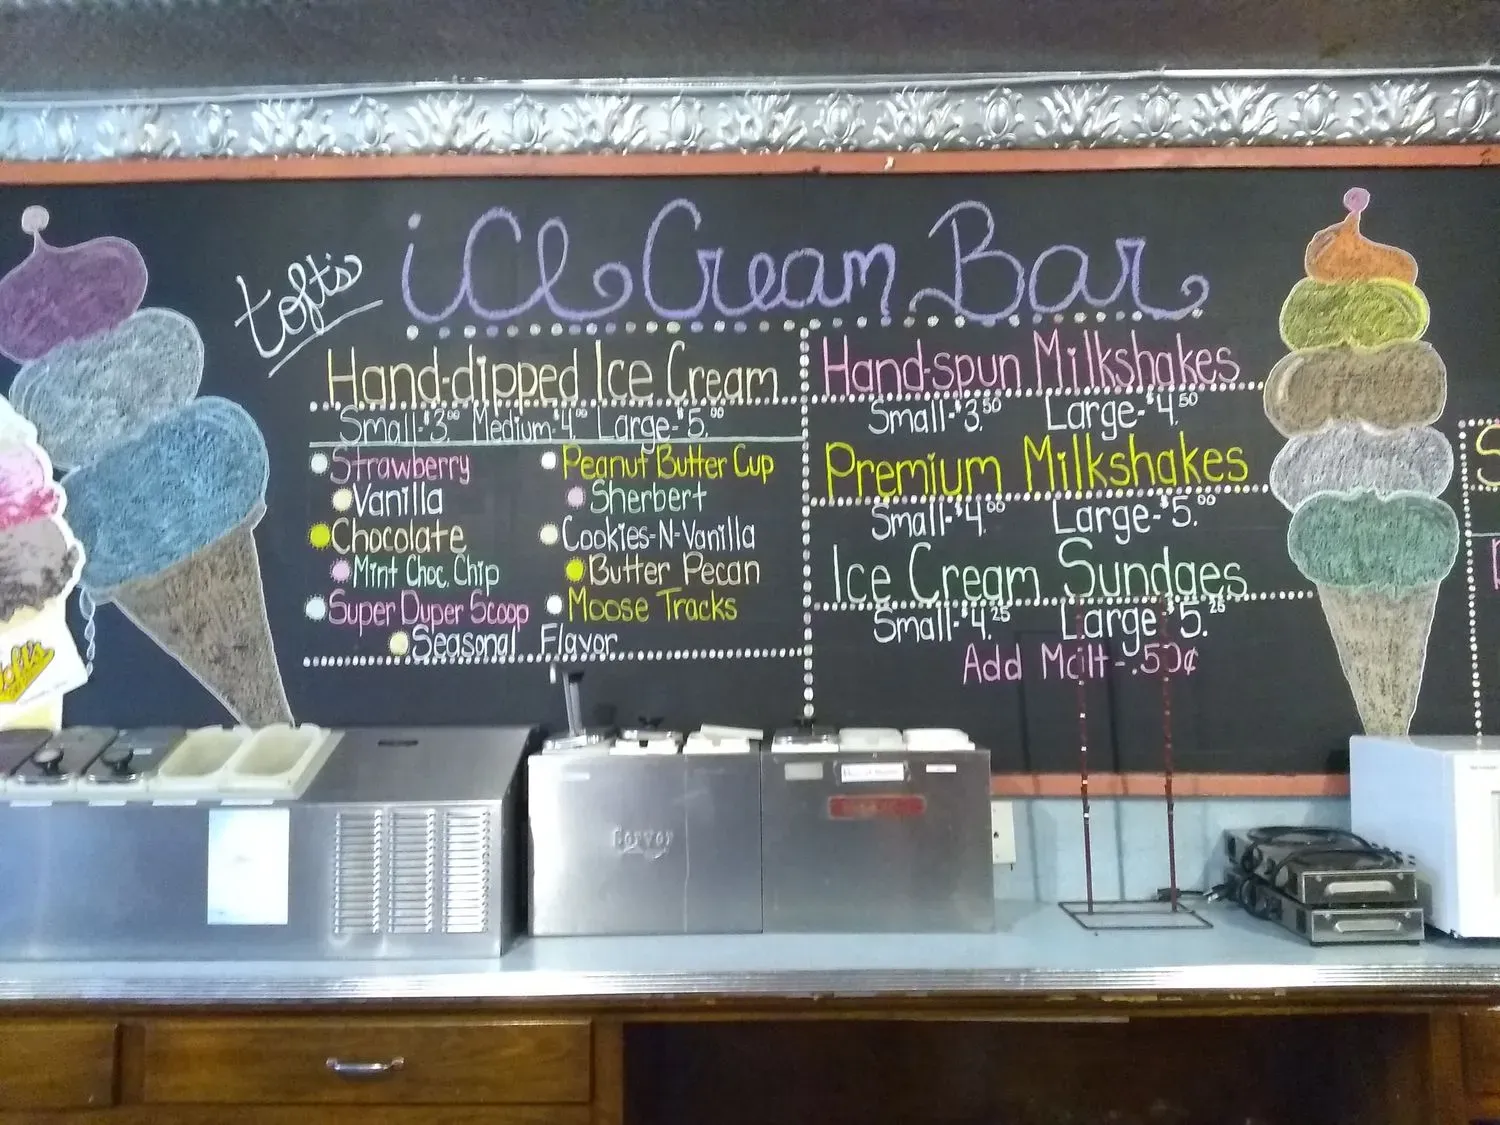 toft's
ice Cream Bar
Hand-dipped Ice Cream
Small-$3.00 Medium-$4.00 Large-$5.00
Strawberry
Vanilla
Chocolate
Mint Choc. Chip
Super Duper Scoop
Peanut Butter Cup
Sherbert
Cookies-N-Vanilla
Butter Pecan
Moose Tracks
Seasonal Flavor
Hand-spun Milkshakes
Small-$3.50 Large-$4.50
Premium Milkshakes
Small-$4.00 Large-$5.00
Ice Cream Sundaes
Small-$4.25 Large $5.25
Add Malt-.50¢
Toft's
Server